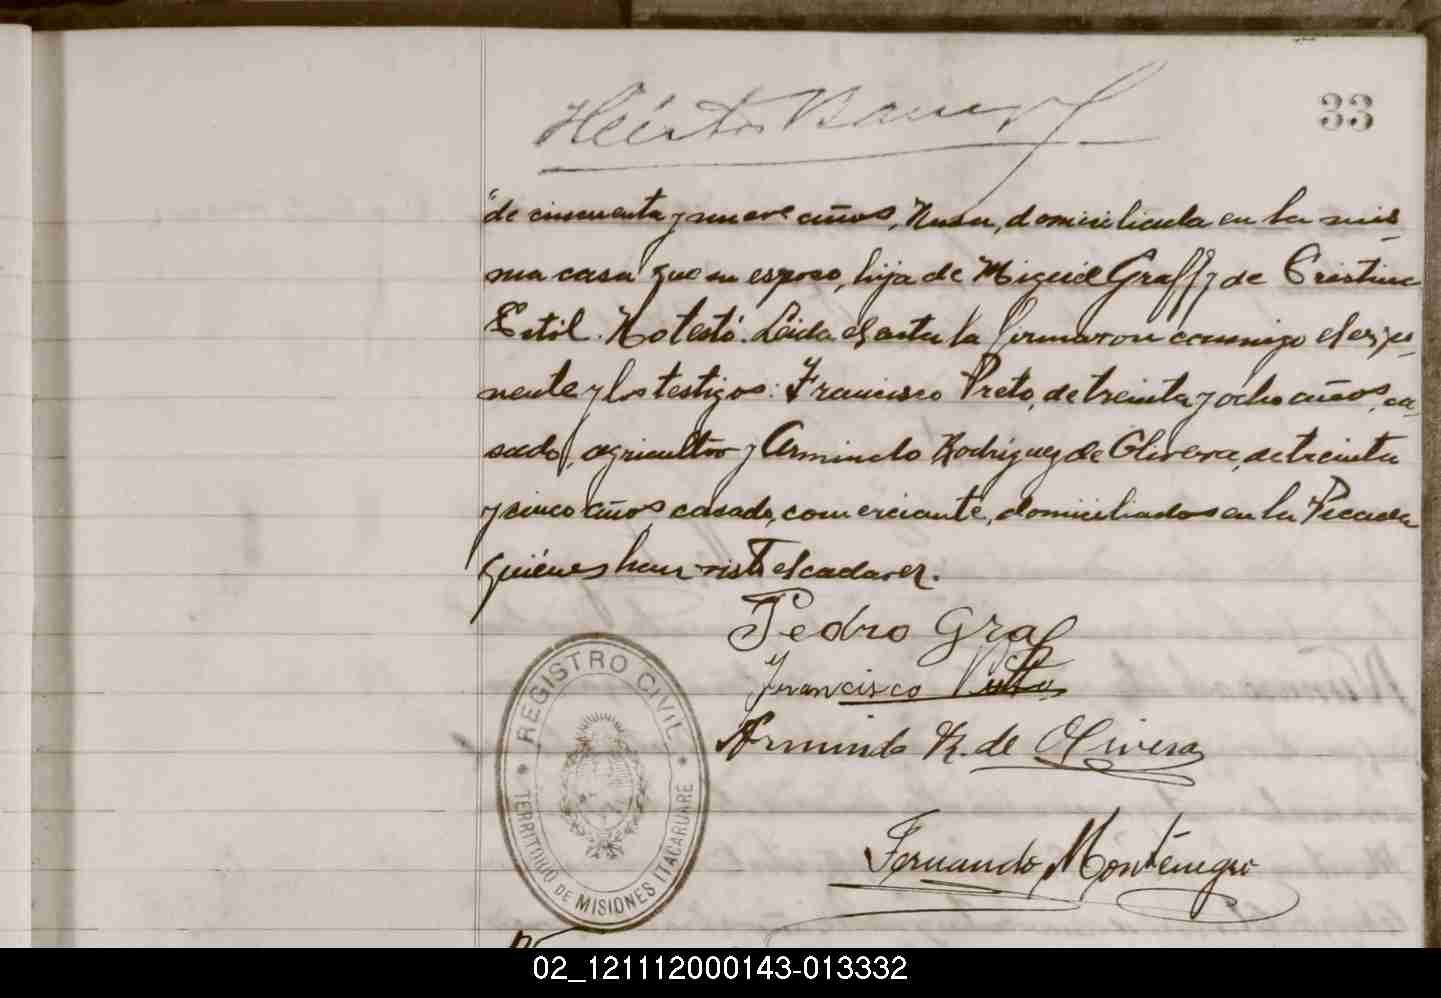 33
de cincuenta y nueve años, Rusa, domiciliada en la mis-
ma casa que su esposo, hija de Miguel Graff y de Cristina
Estil. No testó. Leida el acta la firmaron conmigo el expo-
nente y los testigos: Francisco Preto, de treinta y ocho años, ca-
sado, agricultor y Armindo Rodriguez de Olivera, de treinta
y cinco años casado, comerciante, domiciliados en la Picada
quiénes han visto el cadaver.
Pedro Graf
Francisco
Armindo R. de Olivera
REGISTRO CIVIL
TERRITORIO DE MISIONES ITACARUARE
Fernando Montenegro
02_121112000143-013332